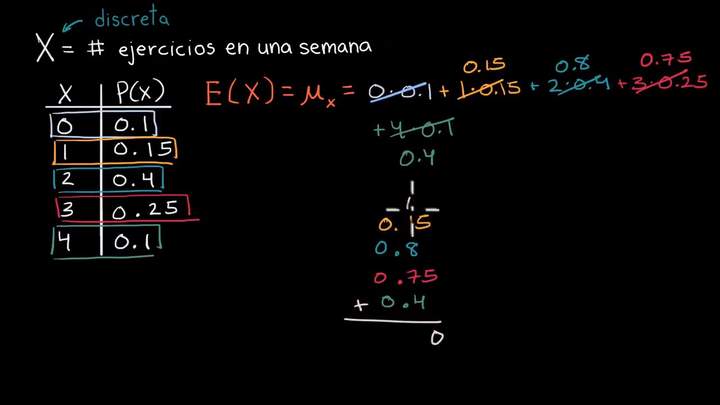 discreta
X = # ejercicios en una semana
X P(X)
0 0.1
1 0.15
2 0.4
3 0.25
4 0.1
0.15 0.8 0.75
E(X) = μx = 0·0.1 + 1·0.15 + 2·0.4 + 3·0.25
+ 4·0.1
0.4
0.15
0.8
0.75
+ 0.4
0